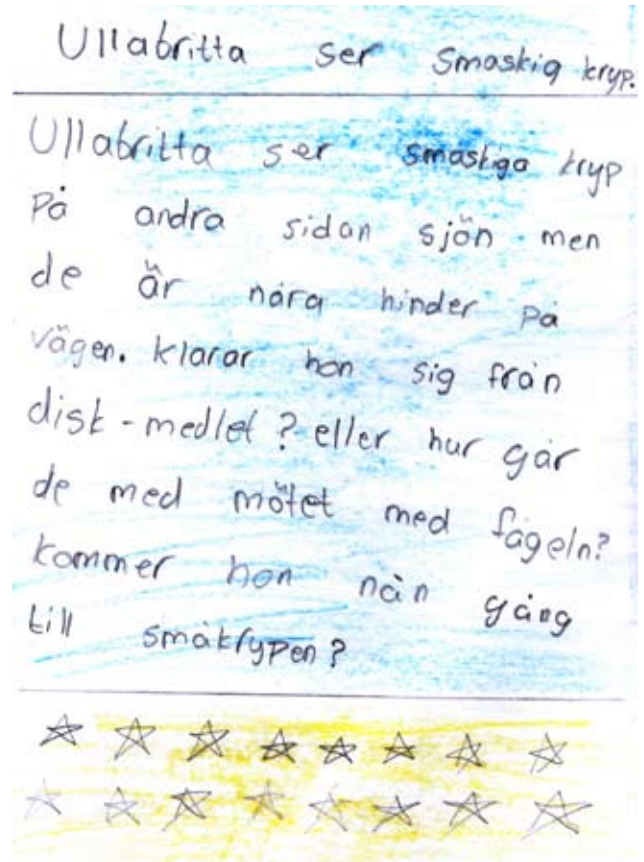 Ullabritta ser smaskig kryp.
Ullabritta ser smaskiga kryp
På andra sidan sjön men
de är nära hinder på
vägen. klarar hon sig från
disk-medlet? eller hur går
de med mötet med fågeln?
kommer hon nån gång
till småkrypen?